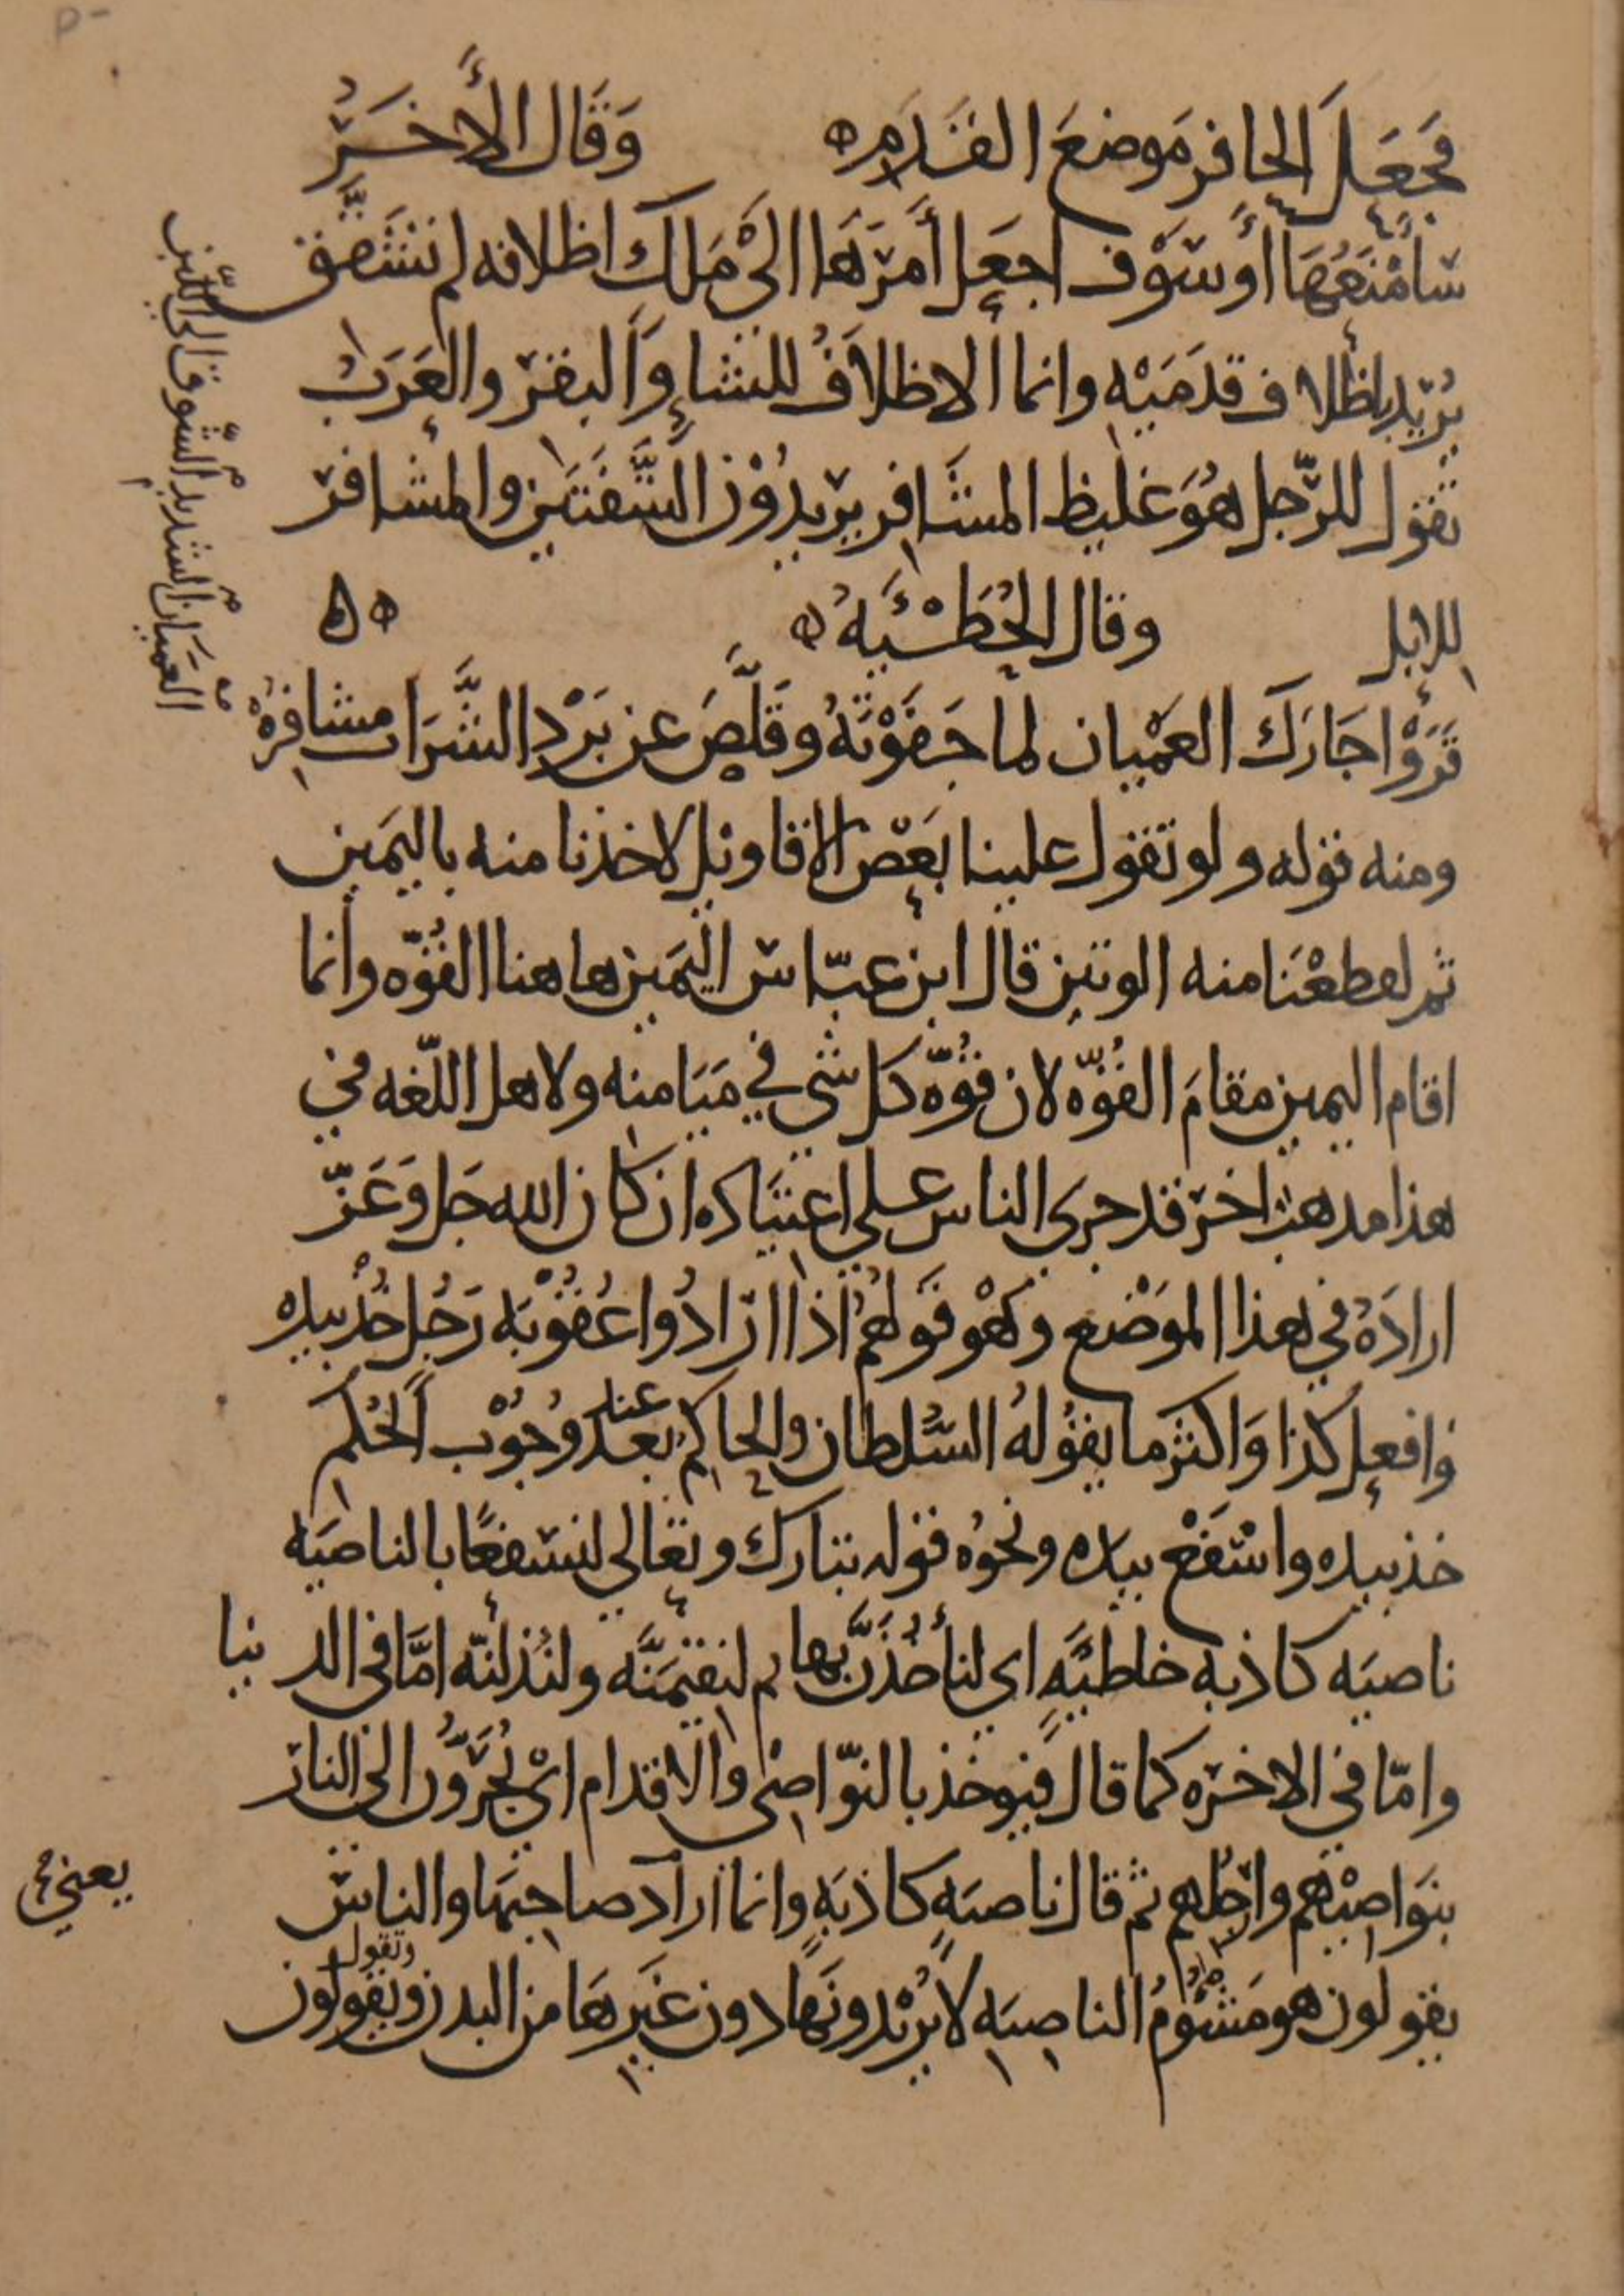 فجَعَلَ الحافر مَوضعَ القَدَمِ وَقَال الأخَرُ
سَأمْنَعُهَا أوسَوْف اجعَل أمرَهَا الىْ مَلك اظلافه لم تشَقّق
يُريد باظلاف قدَمَيْهِ وانما الاظلاَفُ للشاءِ وَالبقر والعَرَبُ
تقول للرّجل هُوَ غليظ المشَافِر يريدُوْن الشَّفَتَين والمشافر
للابل وقال الحُطَيْئَهُ
قَرَوْا جَارَكَ العَمْيان لما جَفَوْتَهُ وقَلَّصَ عن بَرْدِ الشَّرَاب مشافِرُهْ
ومنه قوله ولو تقول علينا بَعْض الاقاويل لاخذنا منه باليَمين
ثم لقطعْنَا منه الوتين قال ابن عبّاس اليَمين هاهنا القُوّه وانما
اقام اليمين مقامَ القُوّه لان قُوّه كل شي في مَيَامنه ولاهل اللّغه في
هذا مذهب اخر قد جرى الناس على اعتيَاده ان كان الله جَل وَعَزّ
ارادَهُ في هذا الموْضع وهْو قوَلهُمْ اذا ارَادُوا عُقُوْبَه رَجُل خُذْ بيده
وَافعل كذا وَاكثرَ ما يقُولهُ السُّلطان والحاكِمُ عند بعد وُجُوْب الحُكم
خذ بيده واسْفَعْ بيده ونحوُه قوله تبارك وتعَالي لنسْفعًا بالناصيَه
ناصيَه كاذبه خاطئَهٍ اي لنأخُذَنَّ بها ثم لنقيمَنَّه ولنُذلنّه امَّا في الدنيا
وامّا في الاخرَه كما قال فيُوخذ بالنوّاصى والاقدام ايْ يُجَرُّوْن الى النار
بنَواصيْهم وارجُلهم ثم قال ناصيَهٍ كاذبَهٍ وانما اراد صاحبَها والناس
يعني
يقولون هو مَشْؤُمُ الناصيَه لاَ يُريْدونَهَا دون غَيرهَا من البدن ويقولون
وتقول
العَمْيَان الشديد الشوق الى اللَّبن